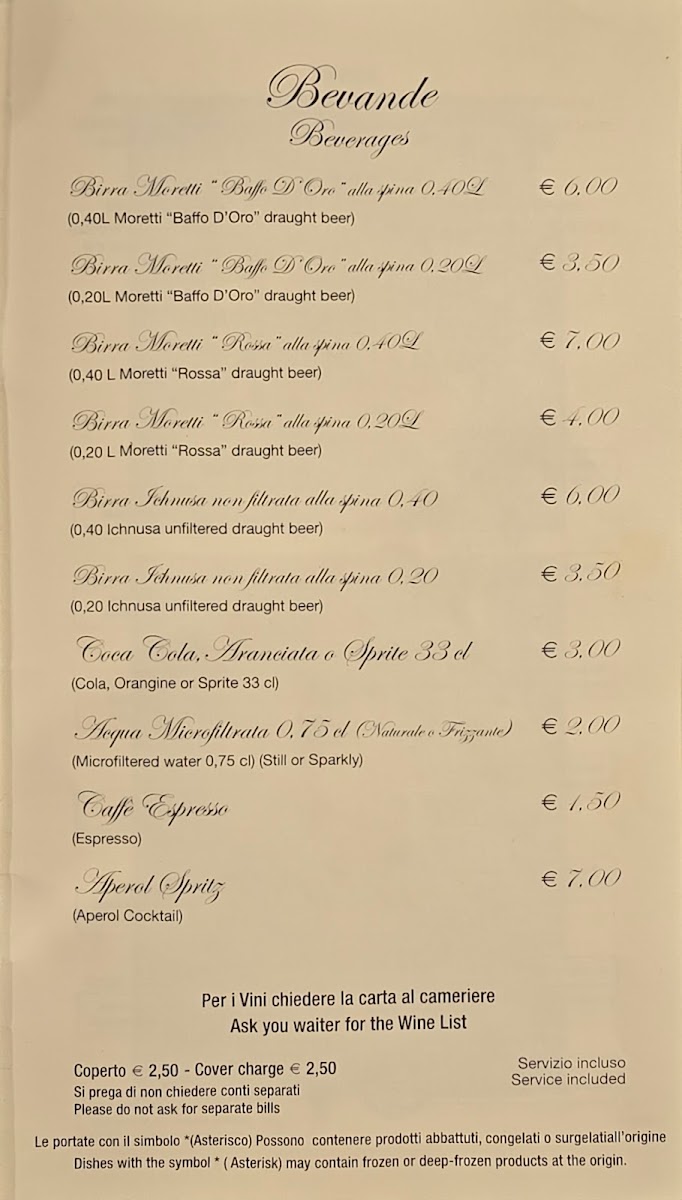 Bevande
Beverages
Birra Moretti "Baffo D'Oro" alla spina 0,40L € 6,00
(0,40L Moretti “Baffo D’Oro” draught beer)
Birra Moretti "Baffo D'Oro" alla spina 0,20L € 3,50
(0,20L Moretti “Baffo D’Oro” draught beer)
Birra Moretti "Rossa" alla spina 0,40L € 7,00
(0,40 L Moretti “Rossa” draught beer)
Birra Moretti "Rossa" alla spina 0,20L € 4,00
(0,20 L Moretti “Rossa” draught beer)
Birra Ichnusa non filtrata alla spina 0,40 € 6,00
(0,40 Ichnusa unfiltered draught beer)
Birra Ichnusa non filtrata alla spina 0,20 € 3,50
(0,20 Ichnusa unfiltered draught beer)
Coca Cola, Aranciata o Sprite 33 cl € 3,00
(Cola, Orangine or Sprite 33 cl)
Acqua Microfiltrata 0,75 cl (Naturale o Frizzante) € 2,00
(Microfiltered water 0,75 cl) (Still or Sparkly)
Caffè Espresso € 1,50
(Espresso)
Aperol Spritz € 7,00
(Aperol Cocktail)
Per i Vini chiedere la carta al cameriere
Ask you waiter for the Wine List
Coperto € 2,50 - Cover charge € 2,50
Si prega di non chiedere conti separati
Please do not ask for separate bills
Servizio incluso
Service included
Le portate con il simbolo *(Asterisco) Possono contenere prodotti abbattuti, congelati o surgelatiall'origine
Dishes with the symbol * ( Asterisk) may contain frozen or deep-frozen products at the origin.